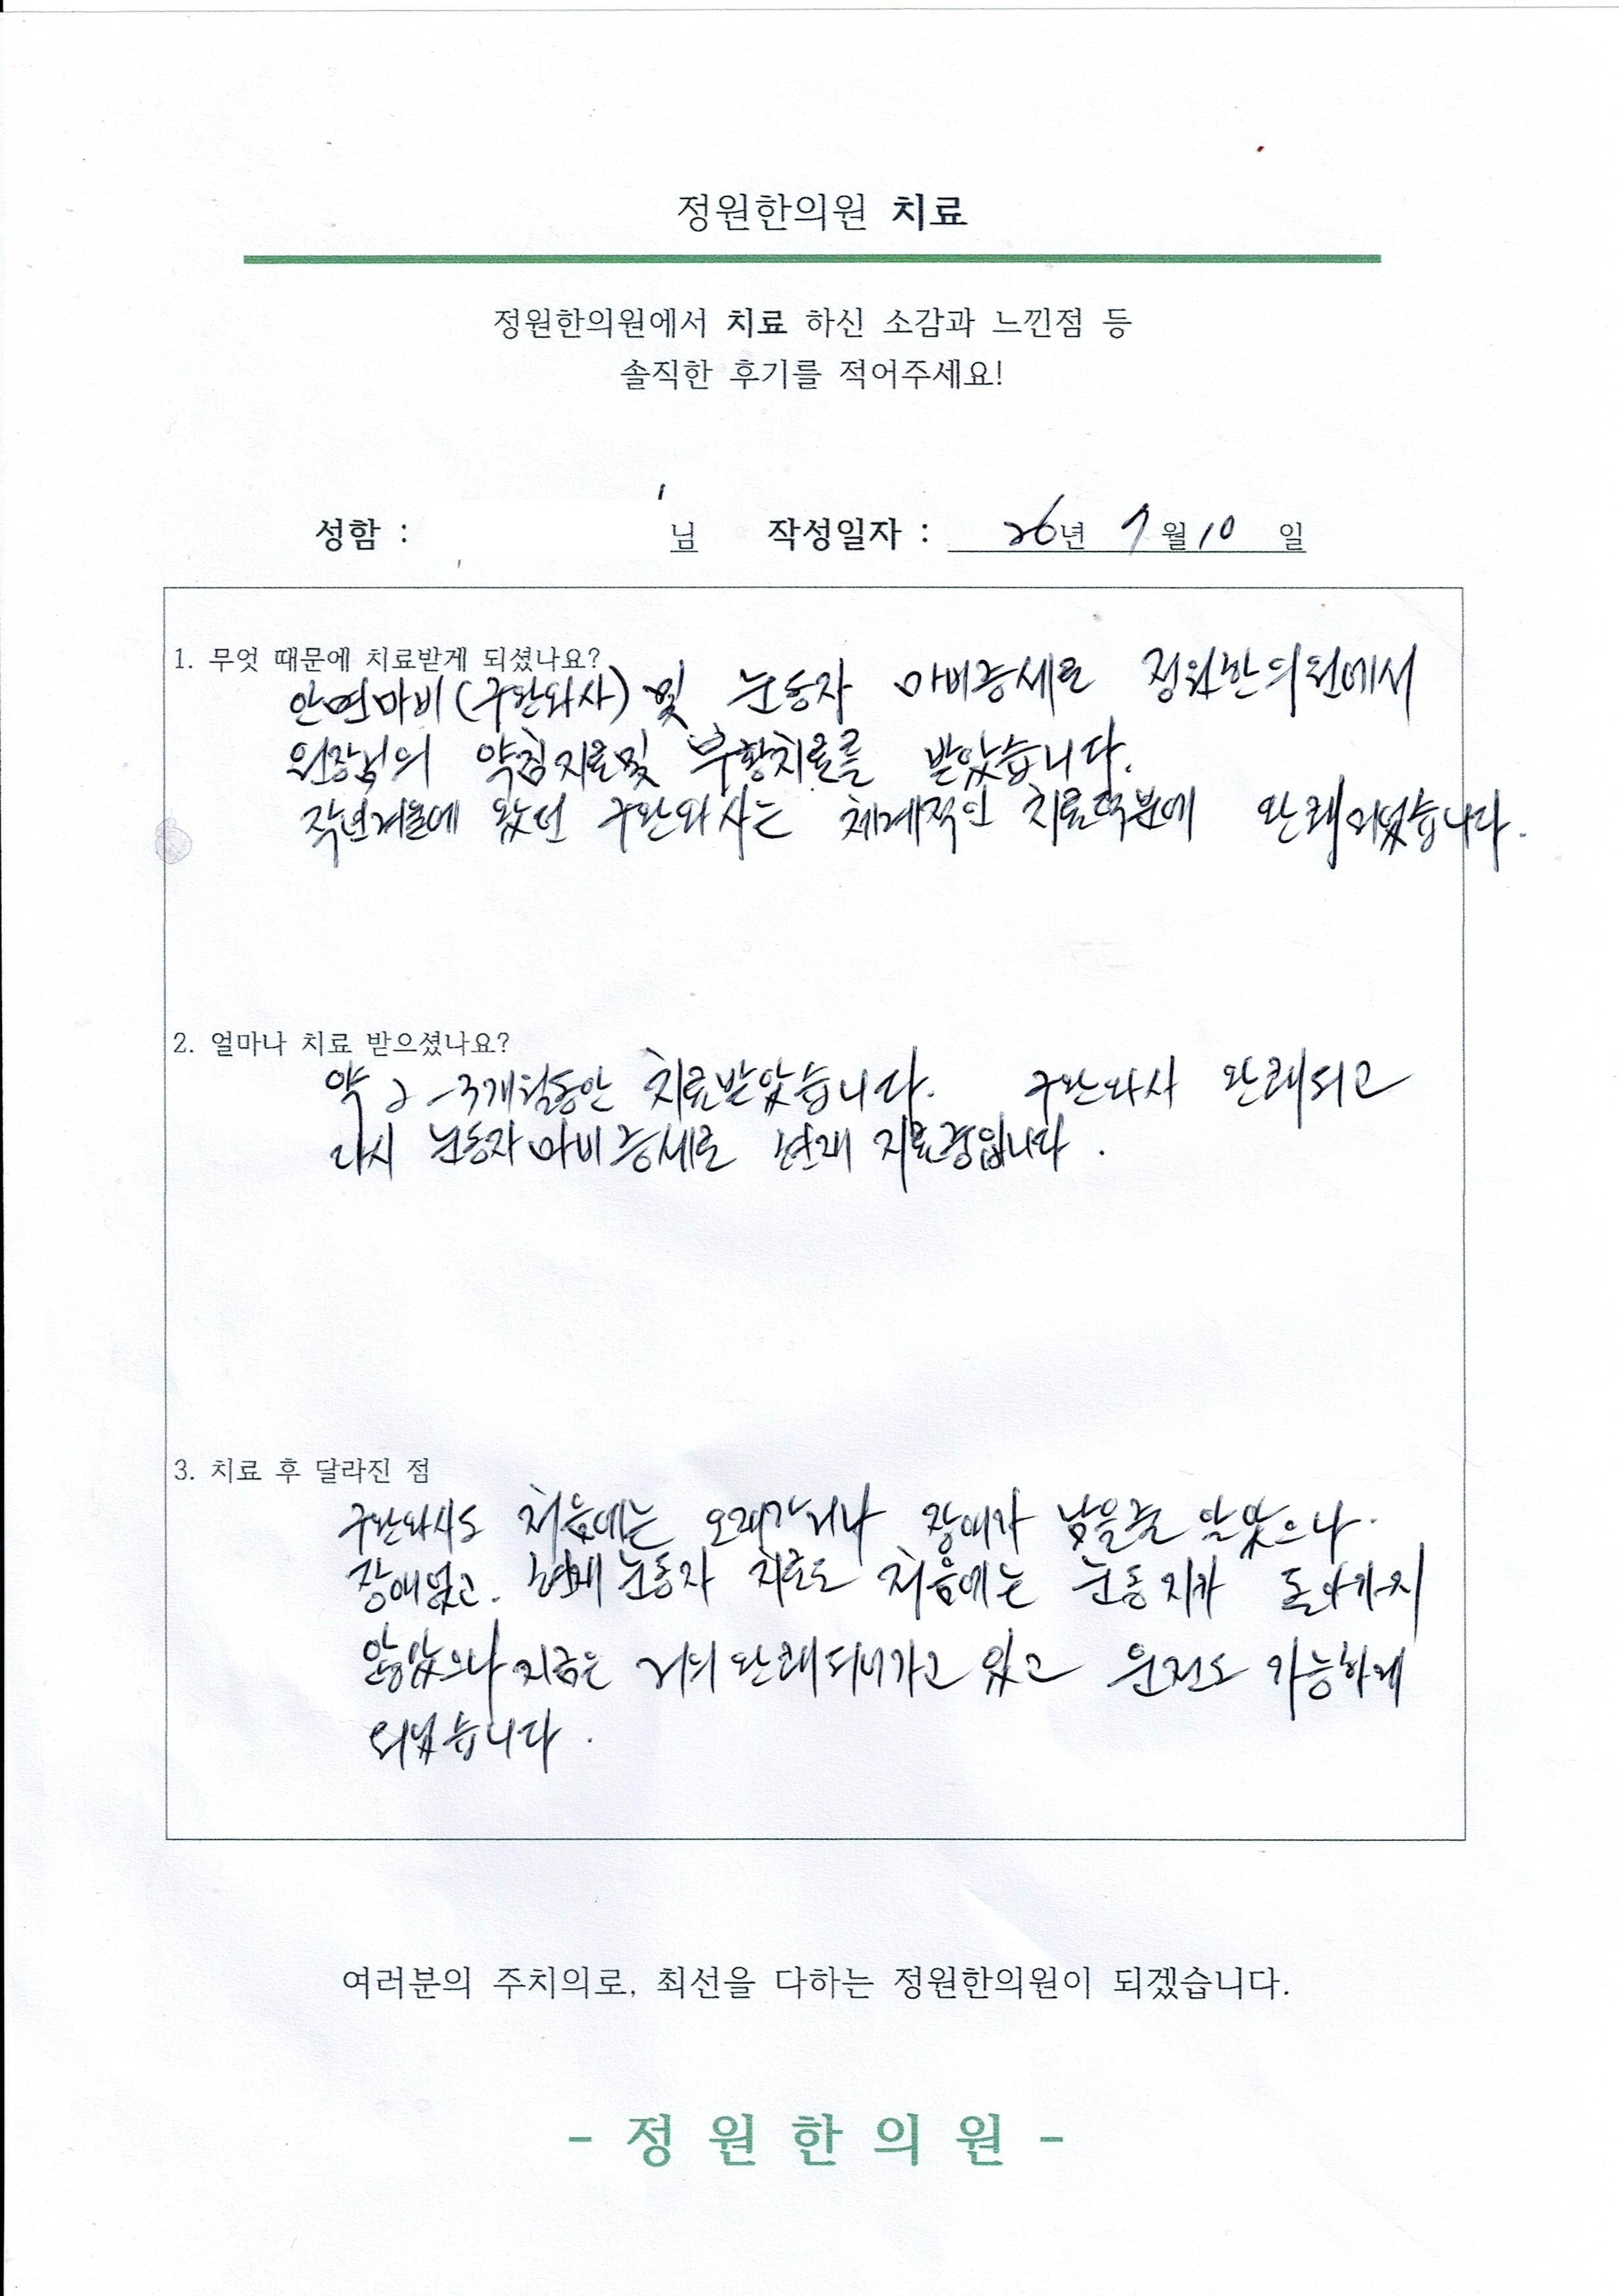 정원한의원 치료
정원한의원에서 치료 하신 소감과 느낀점 등
솔직한 후기를 적어주세요!
성함 : 님 작성일자 : 26년 7월 10 일
1. 무엇 때문에 치료받게 되셨나요?
안면마비(구완와사) 및 눈동자 마비증세로 정원한의원에서
원장님의 약침치료및 부황치료를 받았습니다.
작년겨울에 왔던 구완와사는 체계적인 치료덕분에 완쾌되었습니다.
2. 얼마나 치료 받으셨나요?
약 2-3개월동안 치료받았습니다. 구완와사 완쾌되고
다시 눈동자마비증세로 현재 치료중입니다.
3. 치료 후 달라진 점
구완와사도 처음에는 오래가거나 장애가 남을줄 알았으나
장애없고. 현재 눈동자 치료도 처음에는 눈동자가 돌아가지
않았으나 지금은 거의 완쾌되어가고 있고 운전도 가능하게
되었습니다.
여러분의 주치의로, 최선을 다하는 정원한의원이 되겠습니다.
- 정 원 한 의 원 -